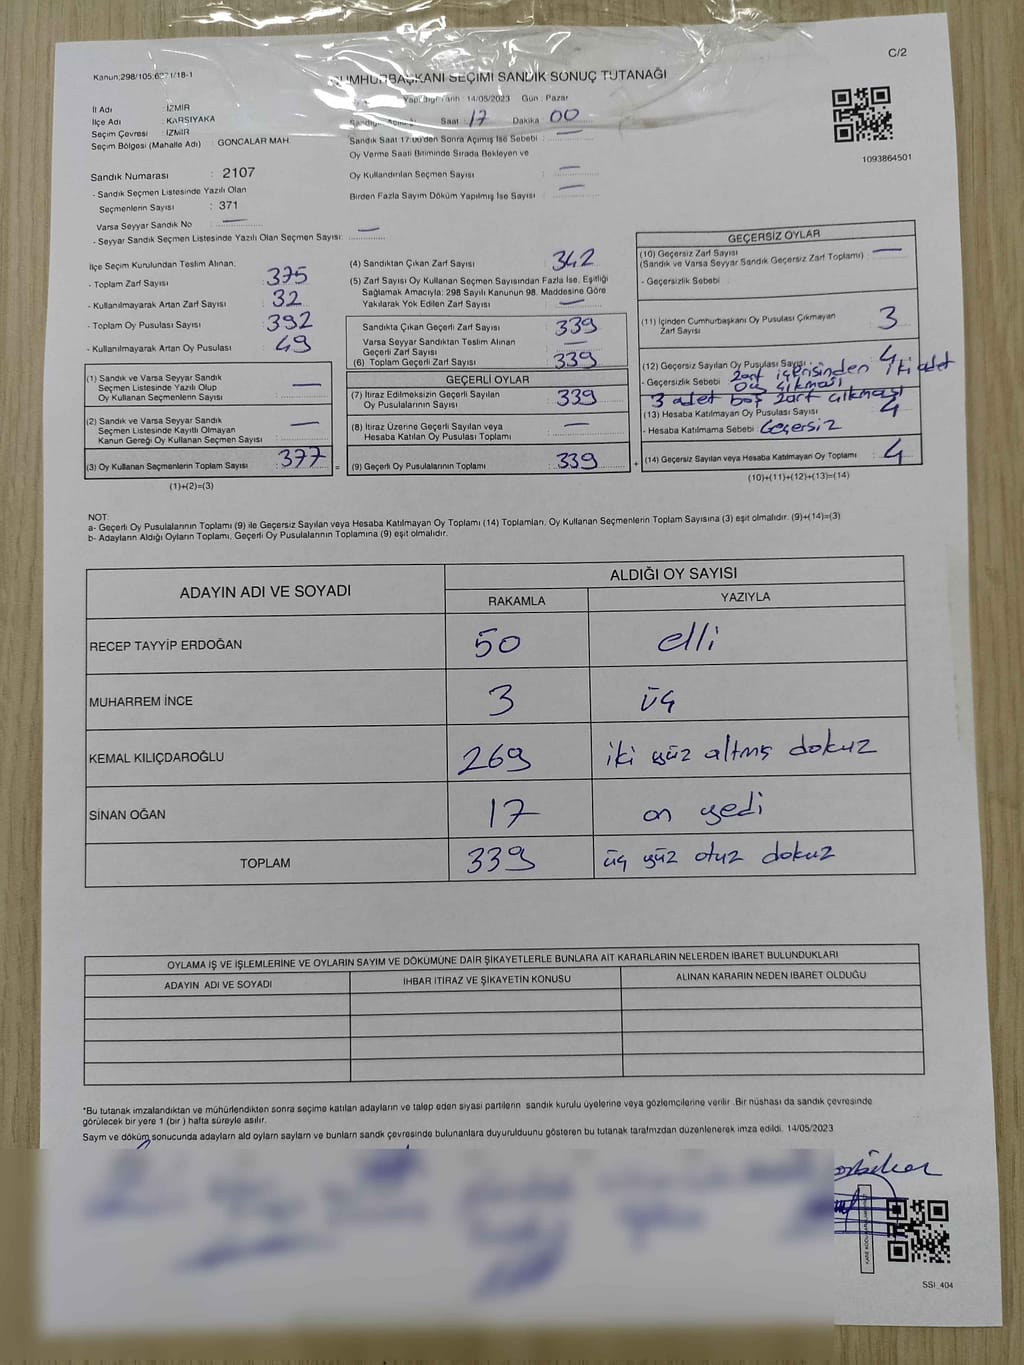 C/2
Kanun:298/105:6271/18-1
CUMHURBAŞKANI SEÇİMİ SANDIK SONUÇ TUTANAĞI
14/05/2023 Gün : Pazar
İl Adı : İZMİR
İlçe Adı : KARŞIYAKA
Seçim Çevresi : İZMİR
Seçim Bölgesi (Mahalle Adı) : GONCALAR MAH.
Saat : 17 Dakika 00
Sandık Saat 17:00'den Sonra Açımış İse Sebebi : —
Oy Verme Saati Bitiminde Sırada Bekleyen ve
Oy Kullandırılan Seçmen Sayısı : —
Birden Fazla Sayım Döküm Yapılmış İse Sayısı : —
1093864501
Sandık Numarası : 2107
- Sandık Seçmen Listesinde Yazılı Olan
Seçmenlerin Sayısı : 371
Varsa Seyyar Sandık No : —
- Seyyar Sandık Seçmen Listesinde Yazılı Olan Seçmen Sayısı: —
İlçe Seçim Kurulundan Teslim Alınan:
- Toplam Zarf Sayısı : 375
- Kullanılmayarak Artan Zarf Sayısı : 32
- Toplam Oy Pusulası Sayısı : 392
- Kullanılmayarak Artan Oy Pusulası : 49
(1) Sandık ve Varsa Seyyar Sandık
Seçmen Listesinde Yazılı Olup
Oy Kullanan Seçmenlerin Sayısı : —
(2) Sandık ve Varsa Seyyar Sandık
Seçmen Listesinde Kayıtlı Olmayan
Kanun Gereği Oy Kullanan Seçmen Sayısı : —
(3) Oy Kullanan Seçmenlerin Toplam Sayısı : 377 =
(1)+(2)=(3)
(4) Sandıktan Çıkan Zarf Sayısı : 342
(5) Zarf Sayısı Oy Kullanan Seçmen Sayısından Fazla İse, Eşitliği
Sağlamak Amacıyla; 298 Sayılı Kanunun 98. Maddesine Göre
Yakılarak Yok Edilen Zarf Sayısı : —
Sandıkta Çıkan Geçerli Zarf Sayısı : 339
Varsa Seyyar Sandıktan Teslim Alınan
Geçerli Zarf Sayısı : —
(6) Toplam Geçerli Zarf Sayısı : 339
GEÇERLİ OYLAR
(7) İtiraz Edilmeksizin Geçerli Sayılan
Oy Pusulalarının Sayısı : 339
(8) İtiraz Üzerine Geçerli Sayılan veya
Hesaba Katılan Oy Pusulası Toplamı : —
(9) Geçerli Oy Pusulalarının Toplamı : 339 +
GEÇERSİZ OYLAR
(10) Geçersiz Zarf Sayısı
(Sandık ve Varsa Seyyar Sandık Geçersiz Zarf Toplamı) : —
- Geçersizlik Sebebi :
(11) İçinden Cumhurbaşkanı Oy Pusulası Çıkmayan
Zarf Sayısı : 3
(12) Geçersiz Sayılan Oy Pusulası Sayısı : 4
- Geçersizlik Sebebi Zarf içerisinden iki adet
oy çıkması
3 adet boş zarf çıkması
(13) Hesaba Katılmayan Oy Pusulası Sayısı : 4
- Hesaba Katılmama Sebebi Geçersiz
(14) Geçersiz Sayılan veya Hesaba Katılmayan Oy Toplamı : 4
(10)+(11)+(12)+(13)=(14)
NOT:
a- Geçerli Oy Pusulalarının Toplamı (9) ile Geçersiz Sayılan veya Hesaba Katılmayan Oy Toplamı (14) Toplamları, Oy Kullanan Seçmenlerin Toplam Sayısına (3) eşit olmalıdır. (9)+(14)=(3)
b- Adayların Aldığı Oyların Toplamı, Geçerli Oy Pusulalarının Toplamına (9) eşit olmalıdır.
ADAYIN ADI VE SOYADI ALDIĞI OY SAYISI
RAKAMLA YAZIYLA
RECEP TAYYİP ERDOĞAN 50 elli
MUHARREM İNCE 3 üç
KEMAL KILIÇDAROĞLU 269 iki yüz altmş dokuz
SİNAN OĞAN 17 on yedi
TOPLAM 339 üç yüz otuz dokuz
OYLAMA İŞ VE İŞLEMLERİNE VE OYLARIN SAYIM VE DÖKÜMÜNE DAİR ŞİKAYETLERLE BUNLARA AİT KARARLARIN NELERDEN İBARET BULUNDUKLARI
ADAYIN ADI VE SOYADI İHBAR İTİRAZ VE ŞİKAYETİN KONUSU ALINAN KARARIN NEDEN İBARET OLDUĞU
*Bu tutanak imzalandıktan ve mühürlendikten sonra seçime katılan adayların ve talep eden siyasi partilerin sandık kurulu üyelerine veya gözlemcilerine verilir .Bir nüshası da sandık çevresinde
görülecek bir yere 1 (bir ) hafta süreyle asılır.
Saym ve döküm sonucunda adaylarn ald oylarn saylarn ve bunlarn sandk çevresinde bulunanlara duyurulduunu gösteren bu tutanak tarafmzdan düzenlenerek imza edildi. 14/05/2023
SSI_404